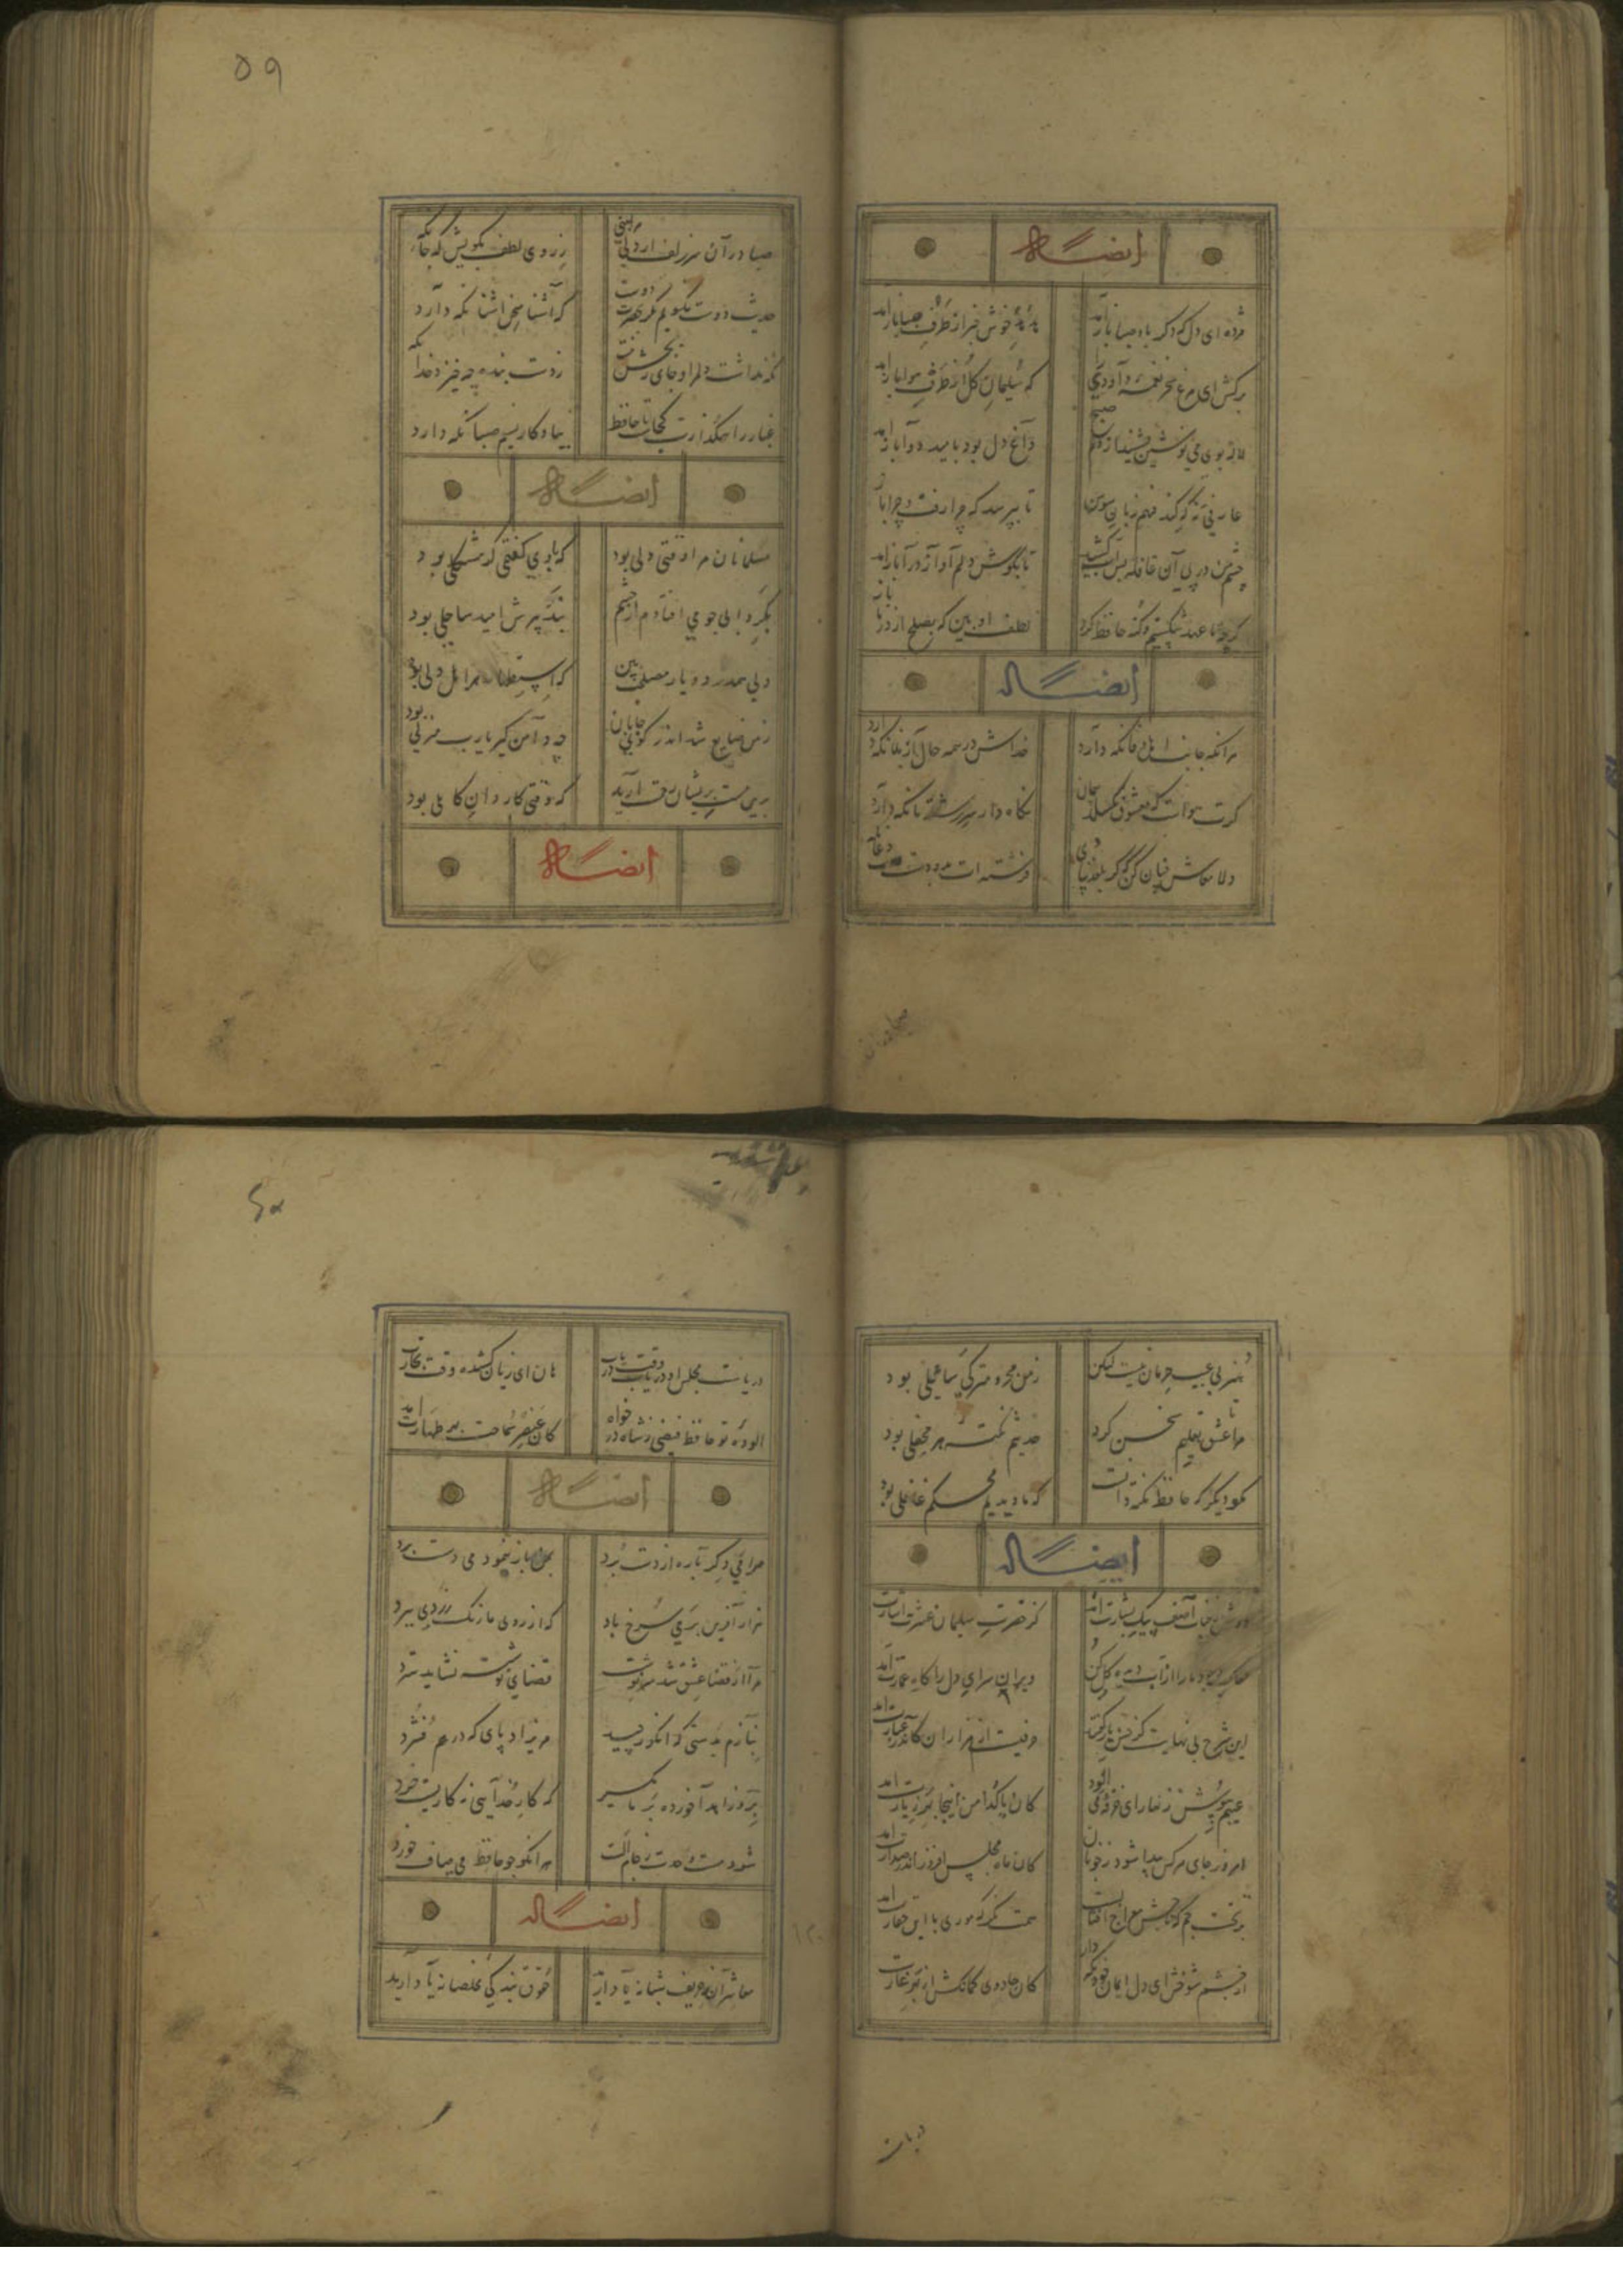 ایضاً له
مژده ای دل که دگر باد صبا بازآمد
هدهد خوش خبر از طرف صبا بازآمد
برکش ای مرغ سحر نغمه داودی را
که سلیمان گل از طرف هوا بازآمد
لاله بوی می نوشین بشنید از دم صبح
داغ دل بود بامید دوا بازآمد
عارفی کو که کند فهم زبان سوسن
تا بپرسد که چرا رفت و چرا باز
چشم من در پی آن قافله بس آب کشید
تا بگوش دلم آواز درا بازآمد
گرچه ما عهد شکستیم و گنه حافظ کرد
لطف او بین که بصلح از در ما باز
ایضاً له
هر آنکه جانب اهل وفا نگه دارد
خداش در همه حال از بلا نگه دارد
گرت هواست که معشوق نگسلد پیمان
نگاه دار سر رشته تا نگه دارد
دلا معاش چنان کن که گر بلغزد پای
فرشته ات بدو دست دعا
صبا در آن سر زلف ار دل مرا بینی
ز روی لطف بگویش که جا نگه
حدیث دوست نگویم مگر بحضرت دوست
که آشنا سخن آشنا نگه دارد
نگه نداشت دلم را و جای رنجش نیست
ز دست بنده چه خیزد خدا نگه
غبار راهگذارت کجاست تا حافظ
بیادگار نسیم صبا نگه دارد
ایضاً له
مسلمانان مرا وقتی دلی بود
که با وی گفتمی گر مشکلی بود
بگردابی چو می افتادم از چشم
بتدبیرش امید ساحلی بود
دلی همدرد و یار مصلحت بین
که استظهار هر اهل دلی بود
ز من ضایع شد اندر کوی جانان
چه دامن گیر یارب منزلی بود
برین مست پریشان رحمت آرید
که وقتی کاردان کاملی بود
ایضاً له
۵۹
هنر بی عیب حرمان نیست لیکن
ز من محروم تر کی سائلی بود
مرا تا عشق تعلیم سخن کرد
حدیثم نکته هر محفلی بود
مگو دیگر که حافظ نکته دانست
که ما دیدیم محکم غافلی بود
ایضاً له
دوش از جناب آصف پیک بشارت آمد
کز حضرت سلیمان عشرت اشارت
خاک وجود ما را از آب دیده گل کن
ویران سرای دل را گاه عمارت آمد
این شرح بی نهایت کز حسن یار گفتند
حرفیست از هزاران کاندر عبارت آمد
عیبم بپوش زنهار ای خرقه می آلود
کان پاکدامن اینجا بهر زیارت آمد
امروز جای هر کس پیدا شود ز خوبان
کان ماه مجلس افروز اندر صدارت آمد
بر تخت جم که تاجش معراج آفتابست
همت نگر که موری با این حقارت آمد
از چشم شوخش ای دل ایمان خود نگه دار
کان جادوی کمانکش از بهر غارت
دریاست مجلس او دریاب وقت دریاب
هان ای زیان کشیده وقت تجارت
آلوده تو حافظ فیضی ز شاه در خواه
کان عنصر سماحت بهر طهارت آمد
ایضاً له
مرا می دگر باره از دست برد
بمن باز بنمود می دست برد
هزار آفرین بر می سرخ باد
که از روی ما رنگ زردی ببرد
مرا از قضا عشق شد سرنوشت
قضای نوشته نشاید سترد
بنازم بدستی که انگور چید
مریزاد پای که در هم فشرد
برو زاهدا خورده بر ما مگیر
که کار خدایی نه کاریست خرد
شود مست وحدت ز جام الست
هر آنکو چو حافظ می صاف خورد
ایضاً له
معاشران ز حریف شبانه یاد آرید
حقوق بندگی مخلصانه یاد آرید
۶۰